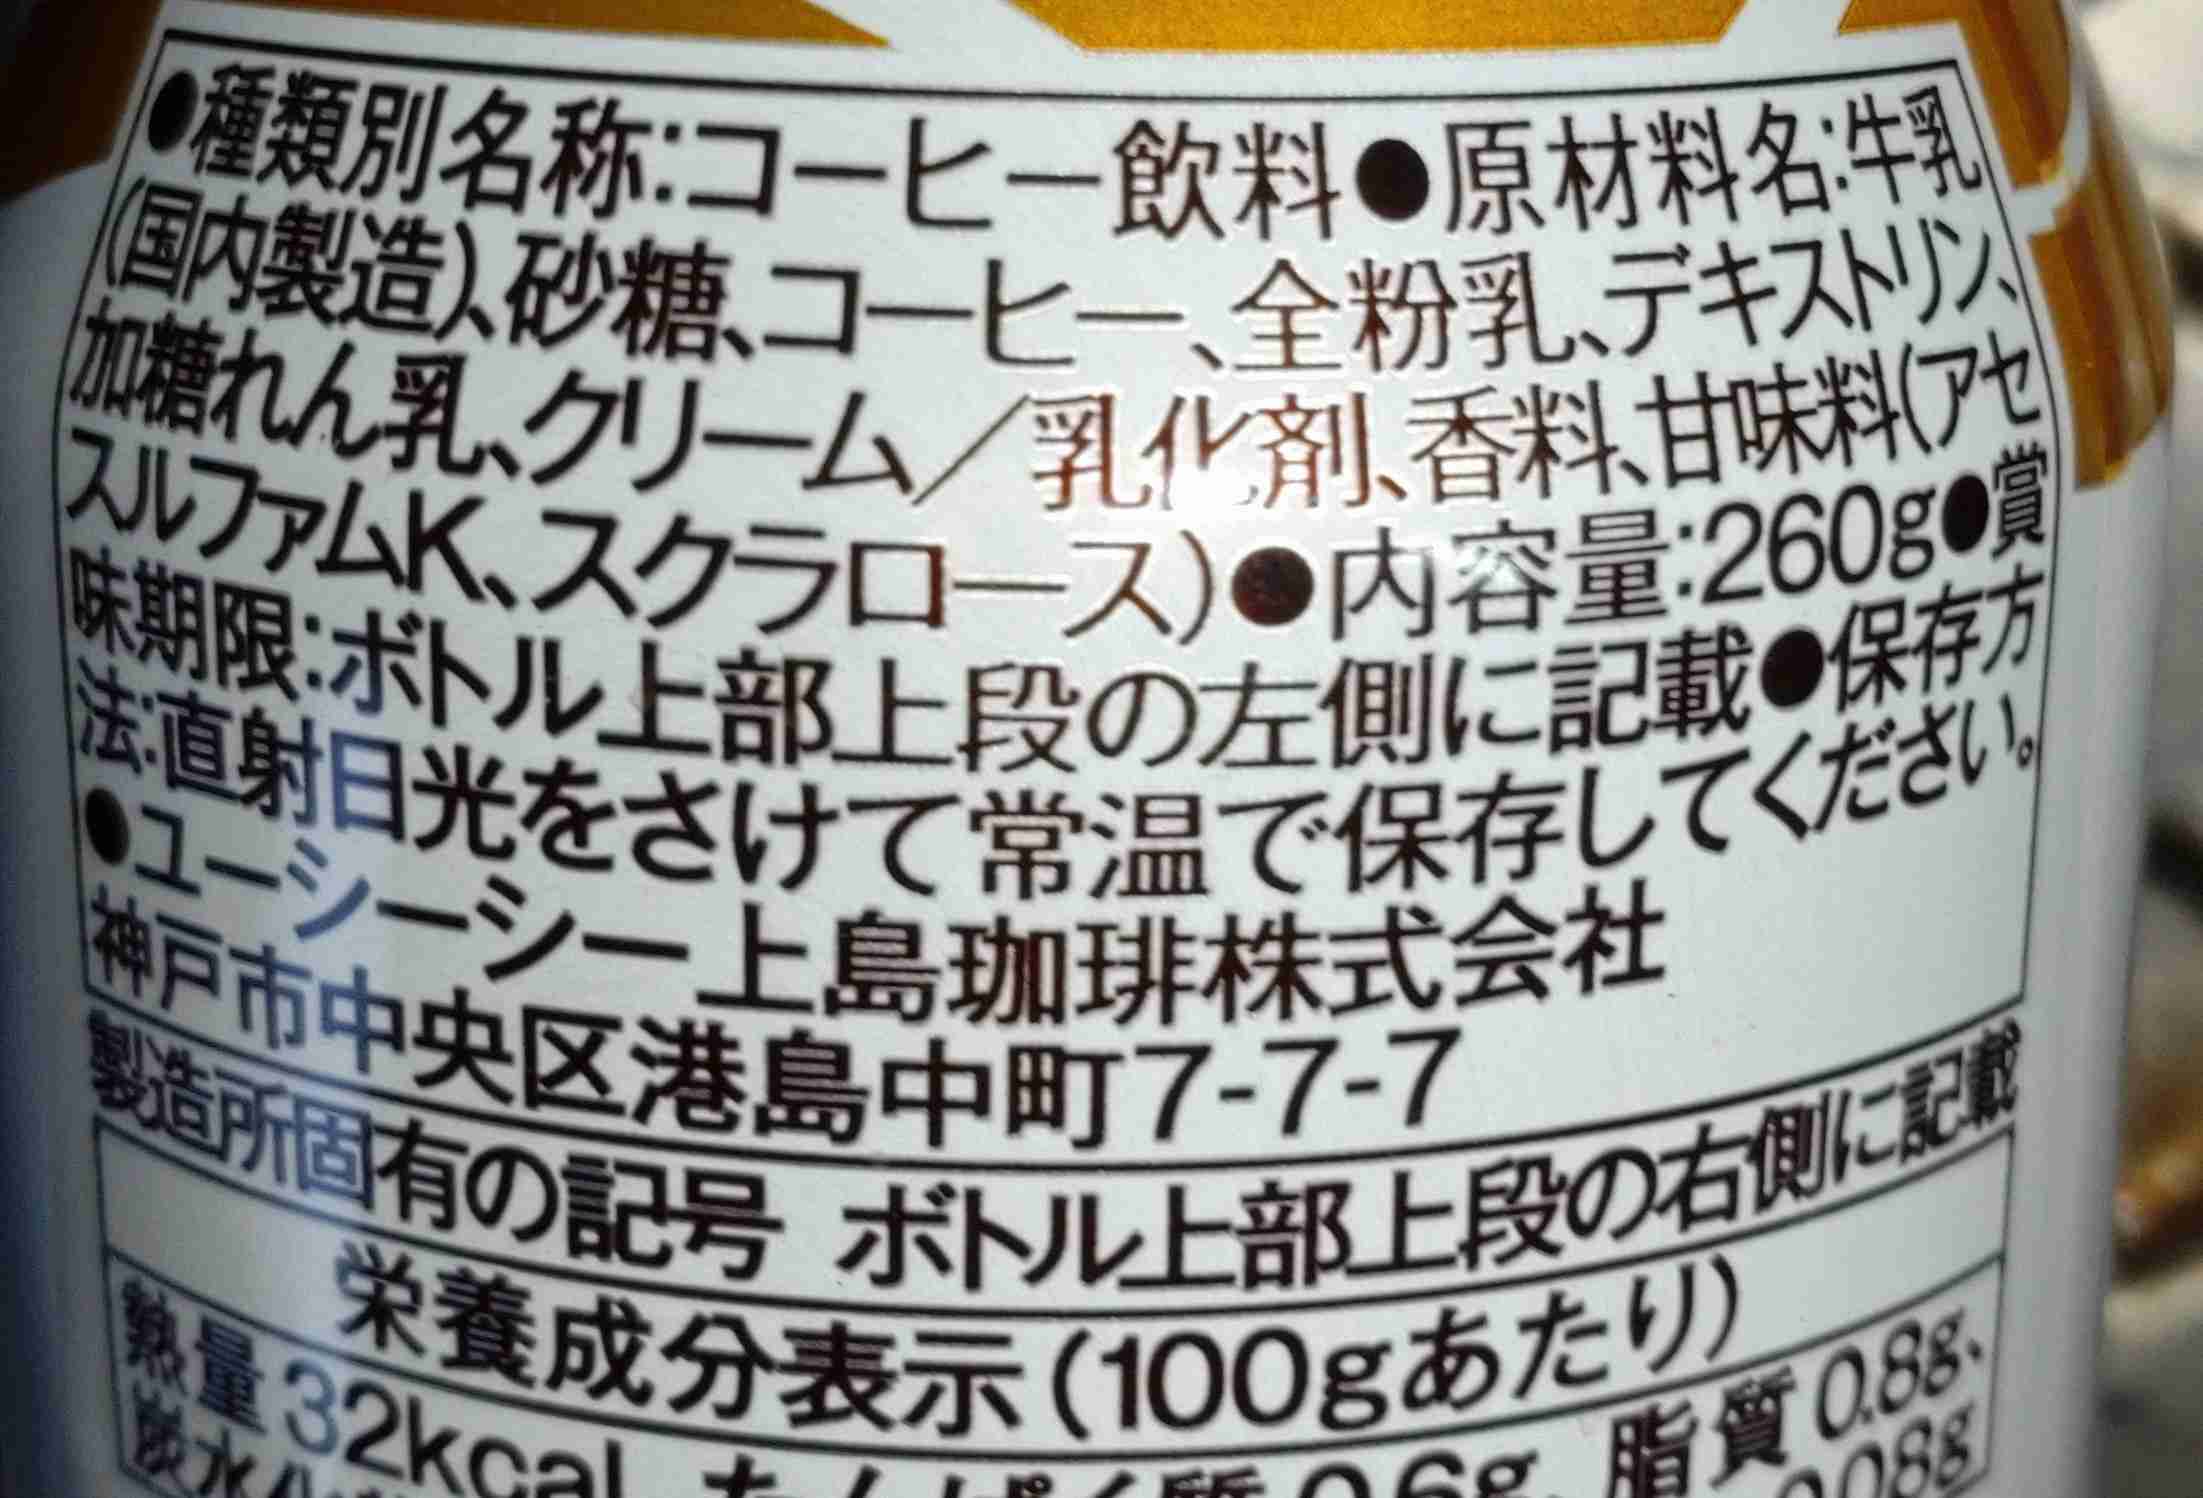 ●種類別名称:コーヒー飲料●原材料名:牛乳
(国内製造)、砂糖、コーヒー、全粉乳、デキストリン、
加糖れん乳、クリーム／乳化剤、香料、甘味料(アセ
スルファムK、スクラロース)●内容量:260g●賞
味期限:ボトル上部上段の左側に記載●保存方
法:直射日光をさけて常温で保存してください。
●ユーシーシー上島珈琲株式会社
神戸市中央区港島中町7-7-7
製造所固有の記号 ボトル上部上段の右側に記載
栄養成分表示(100gあたり)
熱量 32kcal、たんぱく質 0.6g、脂質 0.8g、